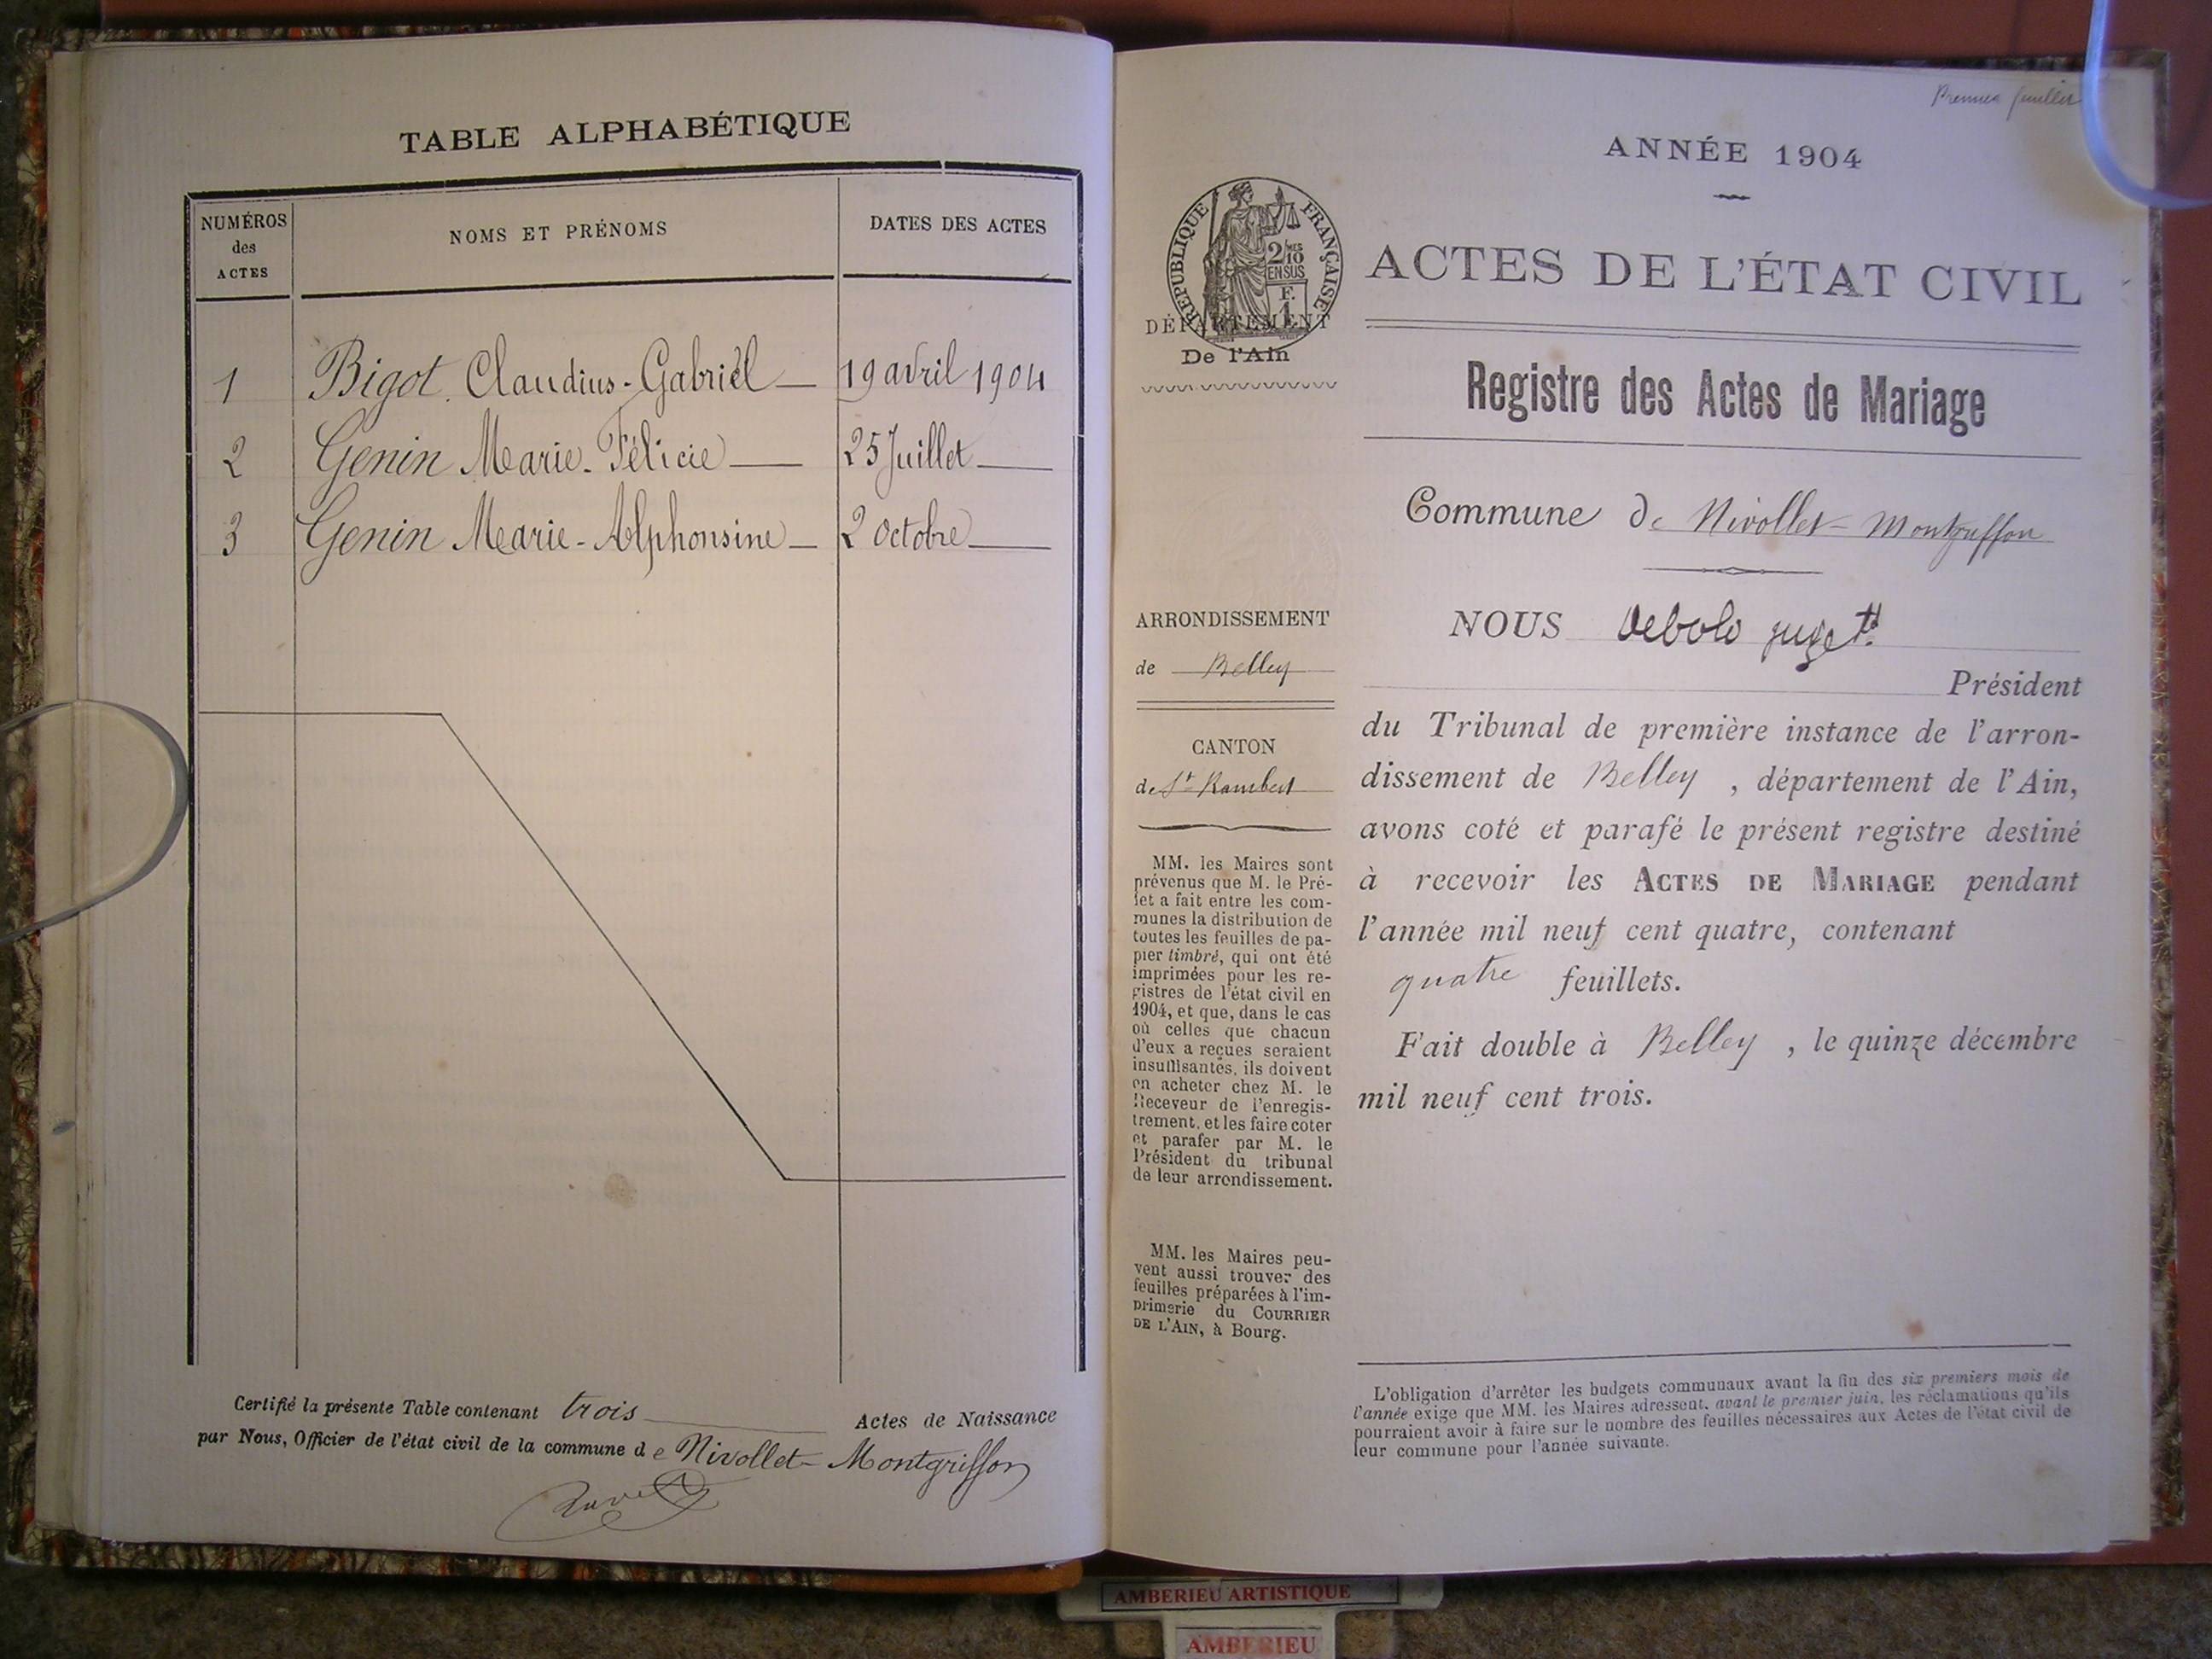 TABLE ALPHABÉTIQUE
NUMÉROS
des
ACTES
NOMS ET PRÉNOMS
DATES DES ACTES
1 Bigot Claudius-Gabriel — 19 avril 1904
2 Genin Marie-Félicie — 25 Juillet —
3 Genin Marie-Alphonsine — 2 Octobre —
Certifié la présente Table contenant trois Actes de Naissance
par Nous, Officier de l'état civil de la commune de Nivollet-Montgriffon
Premier feuillet
ANNÉE 1904
RÉPUBLIQUE FRANÇAISE
2/10 MES
EN SUS
F.
1
DÉPARTEMENT
De l'Ain
ACTES DE L'ÉTAT CIVIL
Registre des Actes de Mariage
Commune de Nivollet-Montgriffon
ARRONDISSEMENT
de Belley
CANTON
de St Rambert
MM. les Maires sont
prévenus que M. le Pré-
fet a fait entre les com-
munes la distribution de
toutes les feuilles de pa-
pier timbré, qui ont été
imprimées pour les re-
gistres de l'état civil en
1904, et que, dans le cas
où celles que chacun
d'eux a reçues seraient
insuffisantes, ils doivent
en acheter chez M. le
Receveur de l'enregis-
trement, et les faire coter
et parafer par M. le
Président du tribunal
de leur arrondissement.
MM. les Maires peu-
vent aussi trouver des
feuilles préparées à l'im-
primerie du COURRIER
DE L'AIN, à Bourg.
NOUS juge
Président
du Tribunal de première instance de l'arron-
dissement de Belley, département de l'Ain,
avons coté et parafé le présent registre destiné
à recevoir les ACTES DE MARIAGE pendant
l'année mil neuf cent quatre, contenant
quatre feuillets.
Fait double à Belley, le quinze décembre
mil neuf cent trois.
L'obligation d'arrêter les budgets communaux avant la fin des six premiers mois de
l'année exige que MM. les Maires adressent, avant le premier juin, les réclamations qu'ils
pourraient avoir à faire sur le nombre des feuilles nécessaires aux Actes de l'état civil de
leur commune pour l'année suivante.
AMBERIEU ARTISTIQUE
AMBERIEU